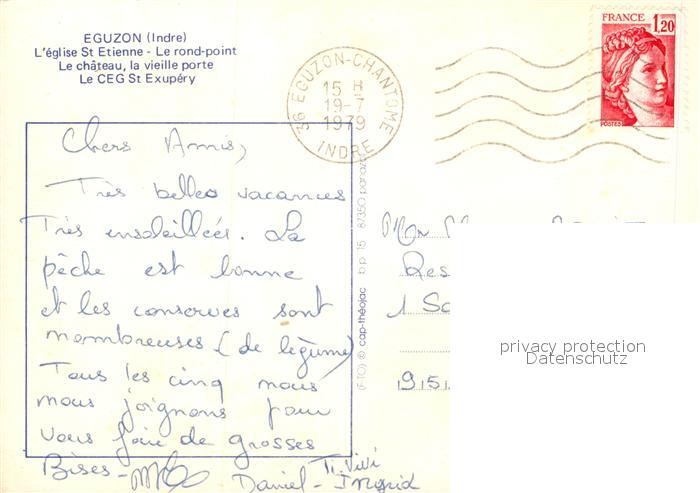 EGUZON (Indre)
L'église St Etienne - Le rond-point
Le château, la vieille porte
Le CEG St Exupéry
36 EGUZON-CHANTOME
15 H
19-7
1979
INDRE
FRANCE 1,20
POSTES
Chers Amis,
Très belles vacances
Très ensoleillées. La
pêche est bonne
et les conserves sont
nombreuses (de légume)
Tous les cinq nous
nous joignons pour
vous faire de grosses
Bises -
Daniel - Ti Vivi
Ingrid
(FTO) © cap-théojac b.p. 15 87350 panazol
Res
1 Sq
915
privacy protection
Datenschutz